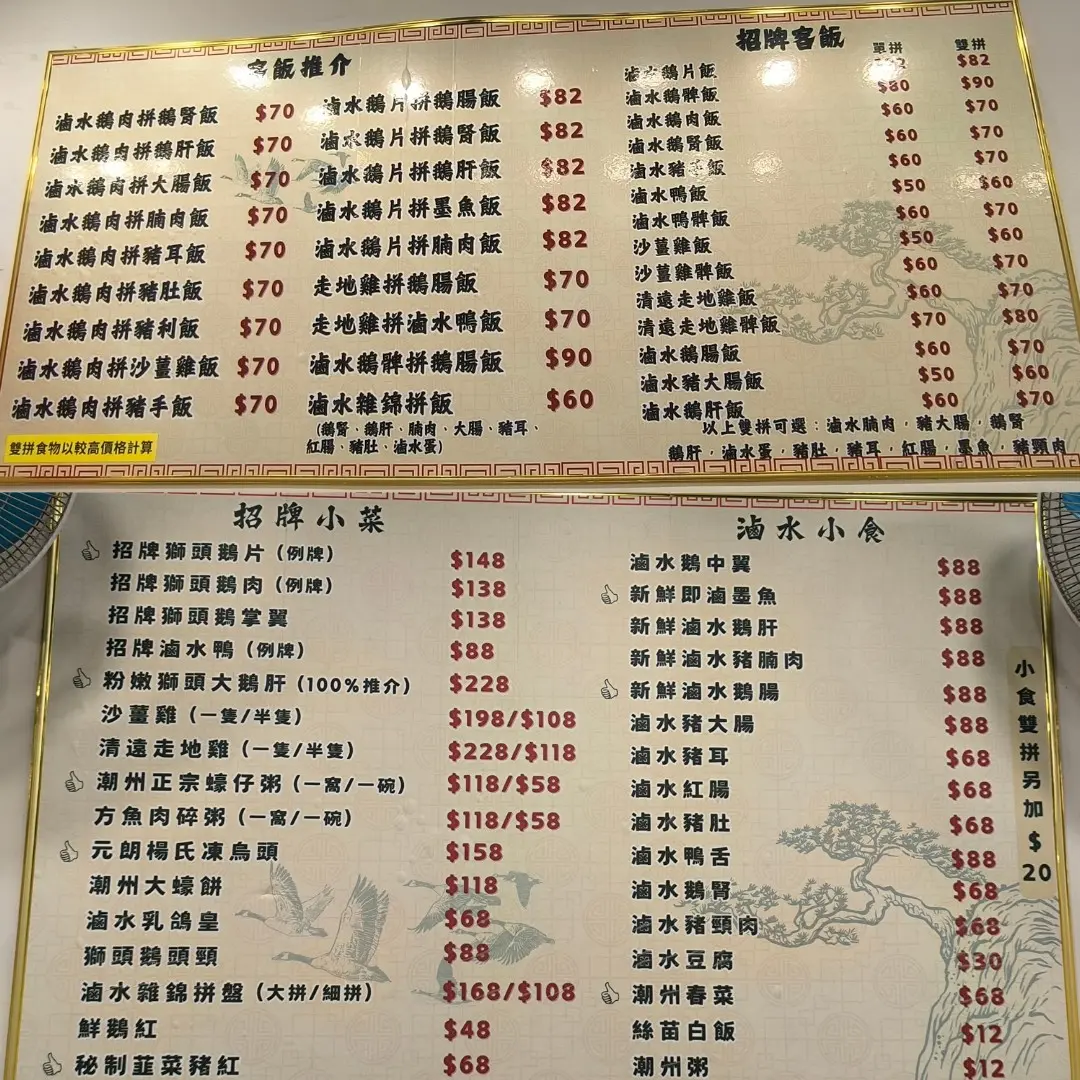 客飯推介
滷水鵝肉拼鵝腎飯 $70
滷水鵝肉拼鵝肝飯 $70
滷水鵝肉拼大腸飯 $70
滷水鵝肉拼腩肉飯 $70
滷水鵝肉拼豬耳飯 $70
滷水鵝肉拼豬肚飯 $70
滷水鵝肉拼豬利飯 $70
滷水鵝肉拼沙薑雞飯 $70
滷水鵝肉拼豬手飯 $70
雙拼食物以較高價格計算
滷水鵝片拼鵝腸飯 $82
滷水鵝片拼鵝腎飯 $82
滷水鵝片拼鵝肝飯 $82
滷水鵝片拼墨魚飯 $82
滷水鵝片拼腩肉飯 $82
走地雞拼鵝腸飯 $70
走地雞拼滷水鴨飯 $70
滷水鵝髀拼鵝腸飯 $90
滷水雜錦拼飯 $60
(鵝腎、鵝肝、腩肉、大腸、豬耳、
紅腸、豬肚、滷水蛋)
招牌客飯
單拼 雙拼
滷水鵝片飯 $82
滷水鵝髀飯 $80 $90
滷水鵝肉飯 $60 $70
滷水鵝腎飯 $60 $70
滷水豬手飯 $60 $70
滷水鴨飯 $50 $60
滷水鴨髀飯 $60 $70
沙薑雞飯 $50 $60
沙薑雞髀飯 $60 $70
清遠走地雞飯 $60 $70
清遠走地雞髀飯 $70 $80
滷水鵝腸飯 $60 $70
滷水豬大腸飯 $50 $60
滷水鵝肝飯 $60 $70
以上雙拼可選：滷水腩肉，豬大腸，鵝腎
鵝肝，滷水蛋，豬肚，豬耳，紅腸，墨魚，豬頸肉
招牌小菜
招牌獅頭鵝片 (例牌) $148
招牌獅頭鵝肉 (例牌) $138
招牌獅頭鵝掌翼 $138
招牌滷水鴨 (例牌) $88
粉嫩獅頭大鵝肝 (100%推介) $228
沙薑雞 (一隻/半隻) $198/$108
清遠走地雞 (一隻/半隻) $228/$118
潮州正宗蠔仔粥 (一窩/一碗) $118/$58
方魚肉碎粥 (一窩/一碗) $118/$58
元朗楊氏凍烏頭 $158
潮州大蠔餅 $118
滷水乳鴿皇 $68
獅頭鵝頭頸 $88
滷水雜錦拼盤 (大拼/細拼) $168/$108
鮮鵝紅 $48
秘制韮菜豬紅 $68
滷水小食
滷水鵝中翼 $88
新鮮即滷墨魚 $88
新鮮滷水鵝肝 $88
新鮮滷水豬腩肉 $88
新鮮滷水鵝腸 $88
滷水豬大腸 $88
滷水豬耳 $68
滷水紅腸 $68
滷水豬肚 $68
滷水鴨舌 $88
滷水鵝腎 $68
滷水豬頸肉 $68
滷水豆腐 $30
潮州春菜 $68
絲苗白飯 $12
潮州粥 $12
小食雙拼另加$20